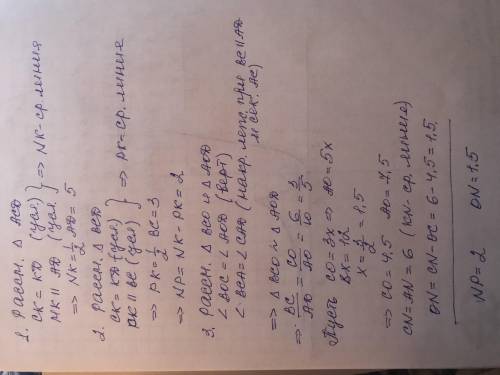 1. Рассм. △ ACD
CK = KD (усл)
NK || AD (усл) } => NK - ср. линия
=> NK = 1/2 AD = 5
2. Рассм. △ BCD
CK = KD (усл)
PK || BC (усл) } => PK - ср. линия
=> PK = 1/2 BC = 3
=> NP = NK - PK = 2
3. Рассм. △ BCO и △ AOD
∠ BOC = ∠ AOD (верт)
∠ BCA = ∠ CAD (накр. леж. при BC || AD
и сек. AC)
=> △ BCO ~ △ AOD
=> BC/AD = CO/AO = 6/10 = 3/5
Пусть CO = 3x => AO = 5x
8x = 12
x = 3/2 = 1,5
=> CO = 4,5 AO = 7,5
CN = AN = 6 (KN - ср. линия)
ON = CN - OC = 6 - 4,5 = 1,5.
NP = 2 ON = 1,5